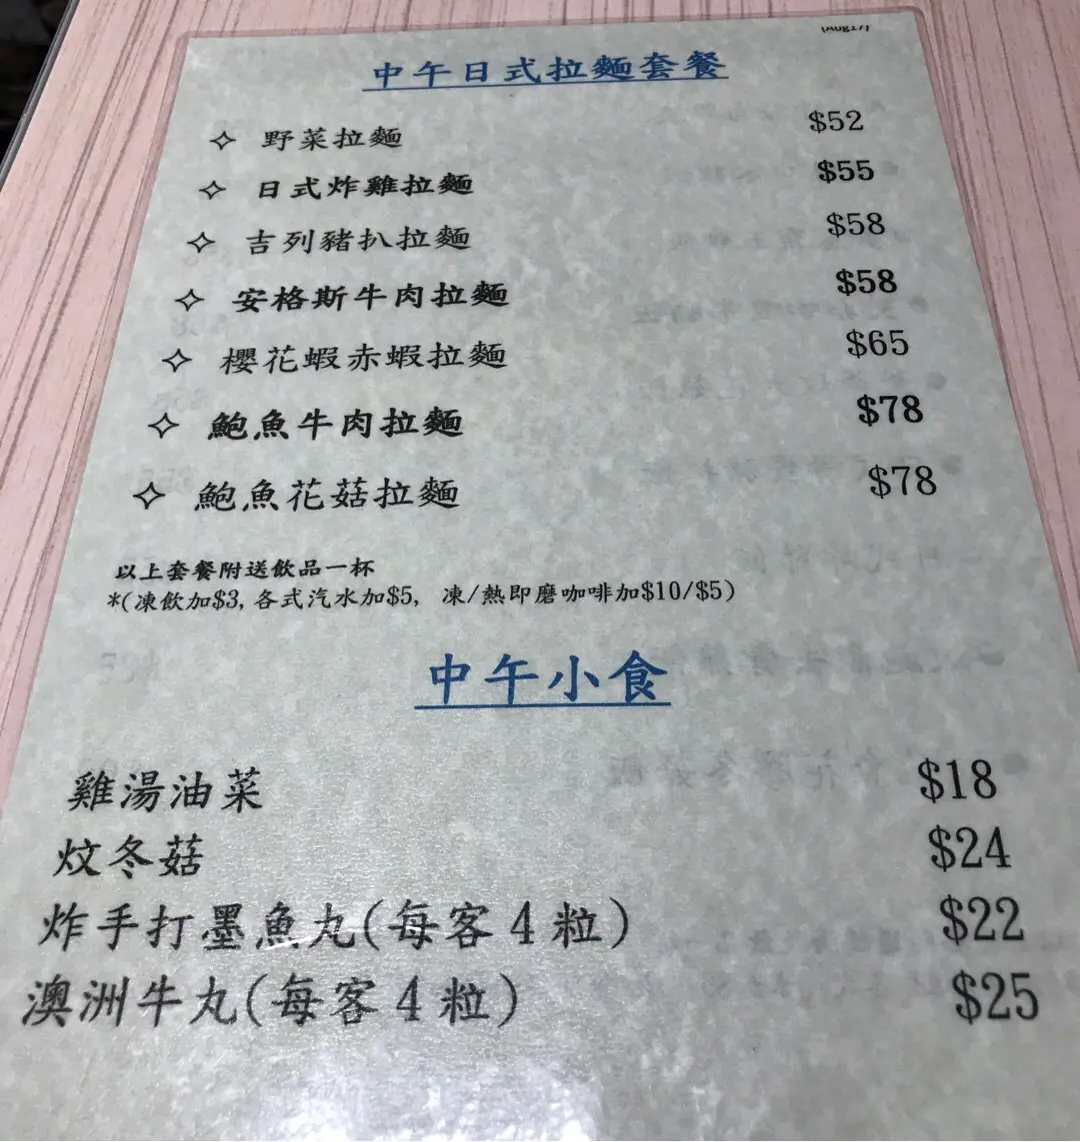 中午日式拉麵套餐
✧ 野菜拉麵 $52
✧ 日式炸雞拉麵 $55
✧ 吉列豬扒拉麵 $58
✧ 安格斯牛肉拉麵 $58
✧ 櫻花蝦赤蝦拉麵 $65
✧ 鮑魚牛肉拉麵 $78
✧ 鮑魚花菇拉麵 $78
以上套餐附送飲品一杯
*(凍飲加$3, 各式汽水加$5, 凍/熱即磨咖啡加$10/$5)
中午小食
雞湯油菜 $18
炆冬菇 $24
炸手打墨魚丸(每客4粒) $22
澳洲牛丸(每客4粒) $25